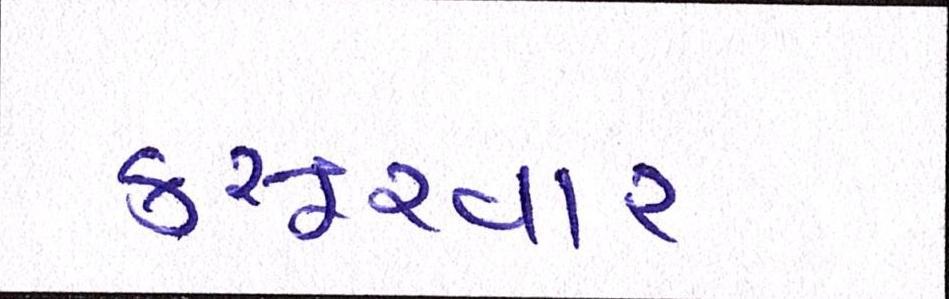 કસૂરવાર